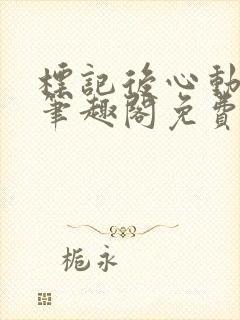 標記後心動
筆趣閣免費
梔永